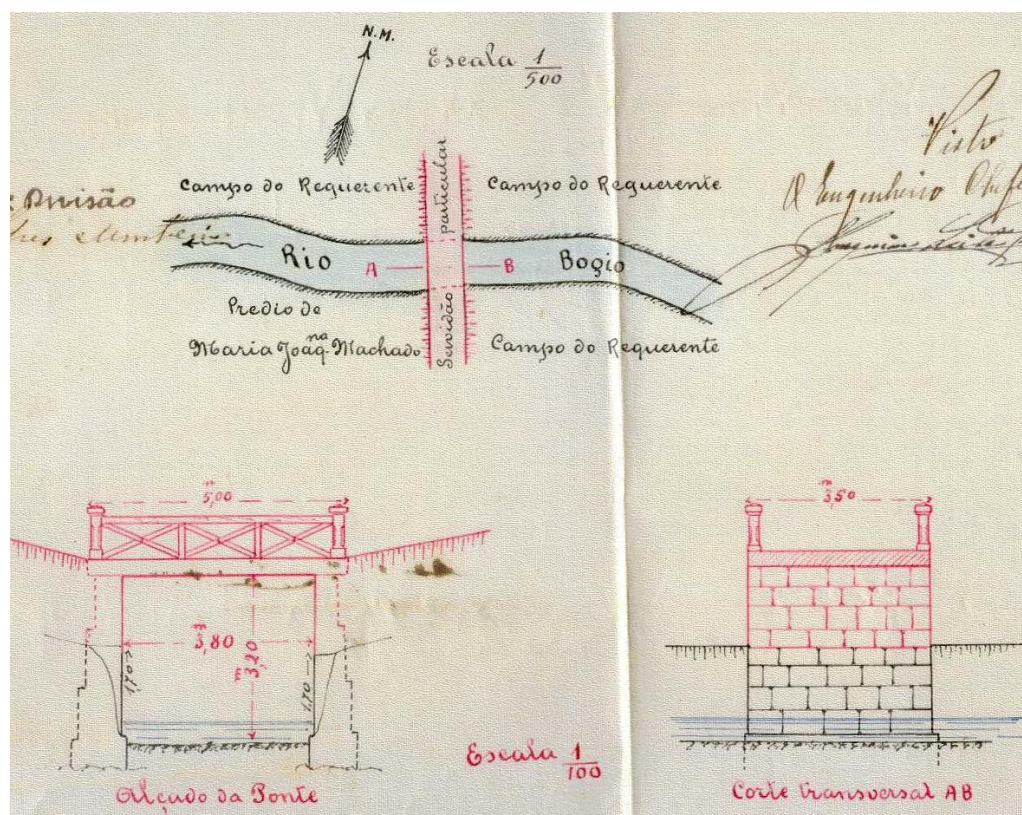 N.M.
Escala 1/500
Visto
O Engenheiro Chefe
Divisão
Campo do Requerente
particular
Campo do Requerente
Rio
A
B
Bogio
Predio de
Maria Joaq.na Machado
Servidão
Campo do Requerente
m
5,00
m
3,50
m
3,80
m
3,20
1,70
1,70
Escala 1/100
Alçado da Ponte
Corte transversal AB